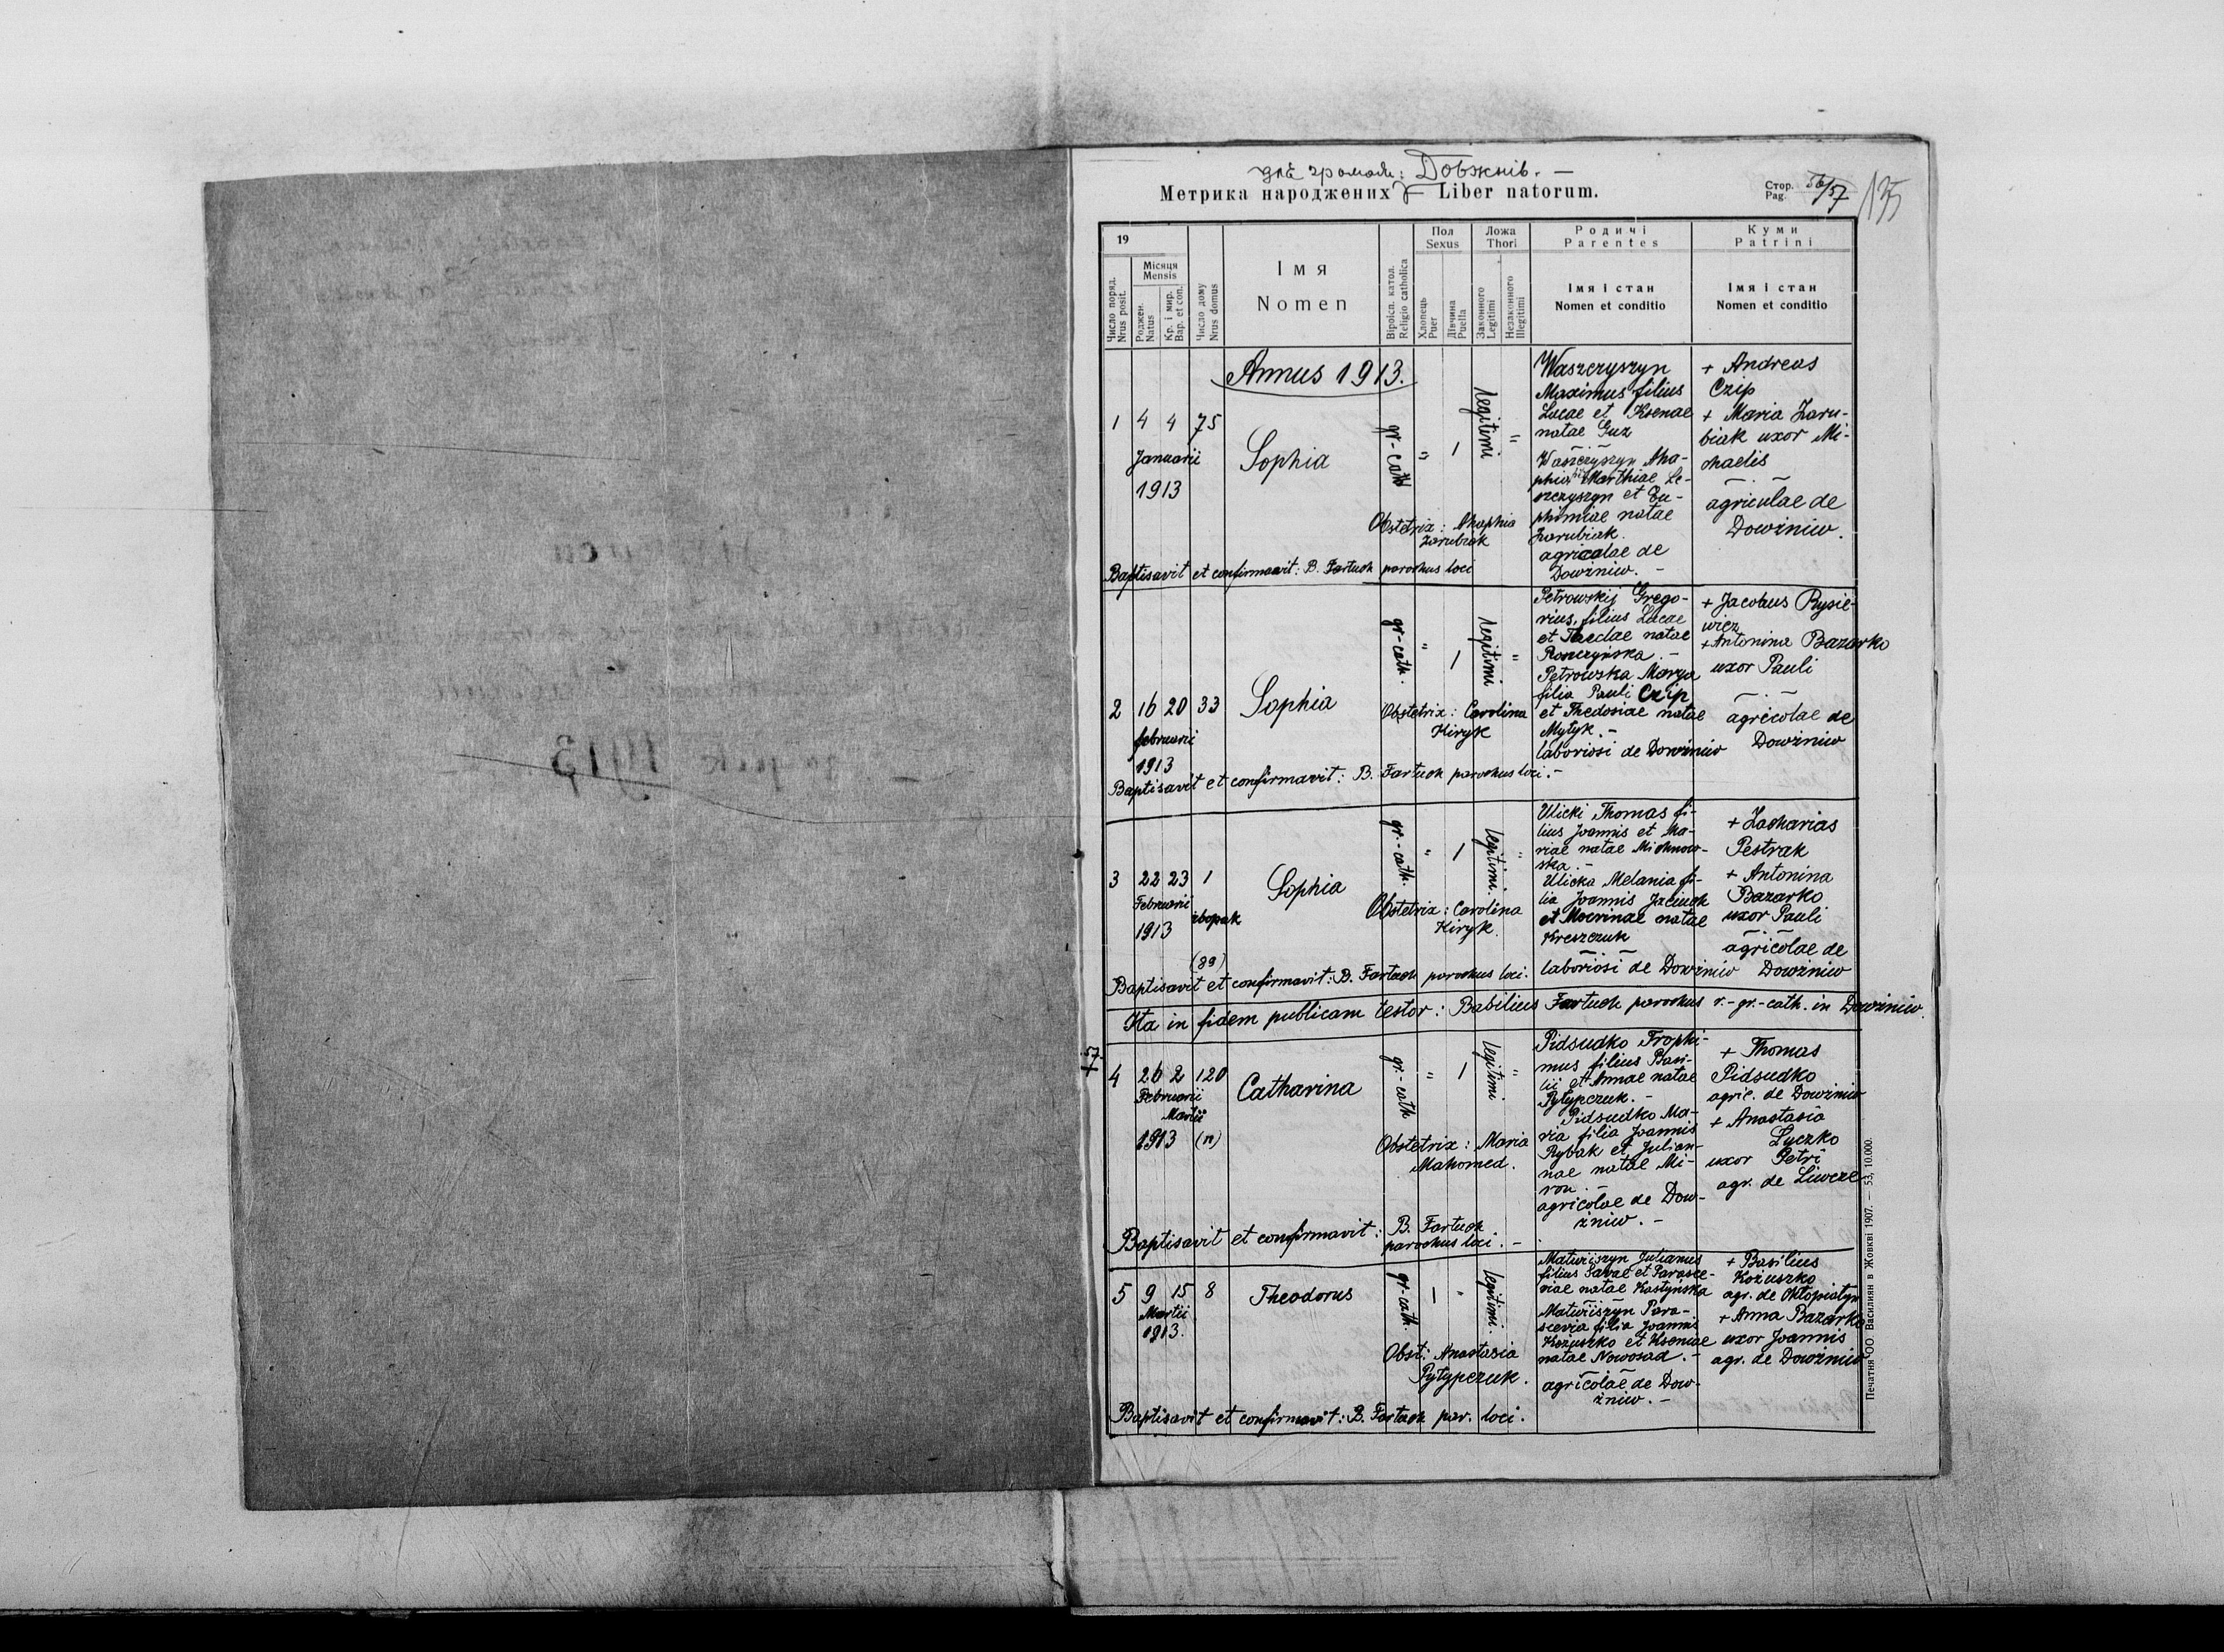 для громади: Довжнів. —
Метрика народжених — Liber natorum.
Стор. Pag. 56/57
135
19
Число поряд. Nrus posit.
Місяця Mensis
Роджен. Natus
Кр. і мир. Bap. et con.
Число дому Nrus domus
Імя
Nomen
Віроісп. катол. Religio catholica
Пол Sexus
Хлопець Puer
Дівчина Puella
Ложа Thori
Законного Legitimi
Незаконного Illegitimi
Родичі
Parentes
Імя і стан
Nomen et conditio
Куми
Patrini
Імя і стан
Nomen et conditio
Annus 1913.
1 4 4 75
Januarii
1913
Sophia
gr-cath
" 1
legitimi
"
Obstetrix: Ahaphia
Zarubiak
Waszczyszyn
Maximus filius
Lucae et Ksenae
natae Guz
Waszczyszyn Aha-
phia Matthiae Le-
szczyszyn et Eu-
phimiae natae
Zarubiak.
agricolae de
Dowżniw. —
+ Andreas
Czip
+ Maria Zaru-
biak uxor Mi-
chaelis
agricolae de
Dowżniw.
Baptisavit et confirmavit: B. Fartuch parochus loci
2 16 20 33
februarii
1913
Sophia
gr-cath.
" 1
legitimi
"
Obstetrix: Carolina
Kiryk
Petrowskij Grego-
rius, filius Lucae
et Theclae natae
Ronczyńska. —
Petrowska Marya
filia Pauli Czip
et Thedosiae natae
Mytyk. —
laboriosi de Dowżniw
+ Jacobus Rysie-
wicz
+ Antonina Bazarko
uxor Pauli
agricolae de
Dowżniw
Baptisavit et confirmavit: B. Fartuch parochus loci. —
3 22 23 1
Februarii
1913
(89)
Sophia
gr.-cath.
" 1
legitimi.
"
Obstetrix: Carolina
Kiryk.
Ulicki Thomas fi-
lius Joannis et Ma-
riae natae Michnow-
ska. —
Ulicka Melania fi-
lia Joannis Jaciuch
et Macrinae natae
Kreszczuk
laboriosi de Dowżniw
+ Zacharias
Pestrak
+ Antonina
Bazarko
uxor Pauli
agricolae de
Dowżniw
Baptisavit et confirmavit: B. Fartuch parochus loci.
Ita in fidem publicam testor: Basilius Fartuch parochus r.-gr.-cath. in Dowżniw.
57
4 26 2 120
Februarii
Martii
1913 (n)
Catharina
gr.-cath
" 1
legitimi
"
Obstetrix: Maria
Mahomed.
Pidsudko Trophi-
mus filius Basi-
lii et Annae natae
Pytypczuk. —
Pidsudko Ma-
ria filia Joannis
Rybak et Julian-
nae natae Mi-
ron. —
agricolae de Dow-
żniw. —
+ Thomas
Pidsudko
agric. de Dowżniw
+ Anastasia
Łyczko
uxor Petri
agr. de Liwcze
Baptisavit et confirmavit: B. Fartuch
parochus loci. —
5 9 15 8
Martii
1913.
Theodorus
gr-cath.
1 "
legitimi.
Obst: Anastasia
Pytypczuk.
Matwiiszyn Julianus
filius Savae et Parasce-
viae natae Kostyńska
Matwiiszyn Para-
scevia filia Joannis
Kożuszko et Kseniae
natae Nowosad. —
agricolae de Dow-
żniw. —
+ Basilius
Kożuszko
agr. de Chłopiatyn
+ Anna Bazarko
uxor Joannis
agr. de Dowżniw
Baptisavit et confirmavit: B. Fartuch par. loci.
Печатня ОО. Василиян в Жовкві 1907. — 53, 10.000.
1913